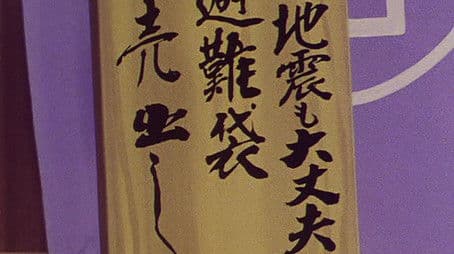 地震も大丈夫
避難袋
売出し